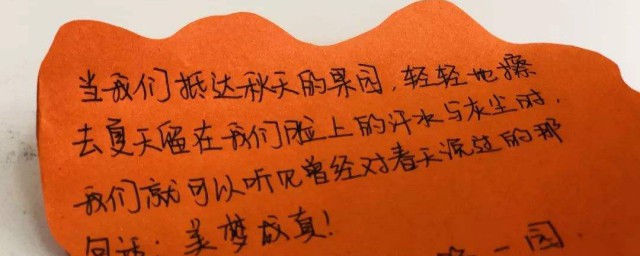 当我们抵达秋天的果园,轻轻地擦
去夏天留在我们脸上的汗水与灰尘时,
我们就可以听见曾经对春天说过的那
句话:美梦成真!
一园